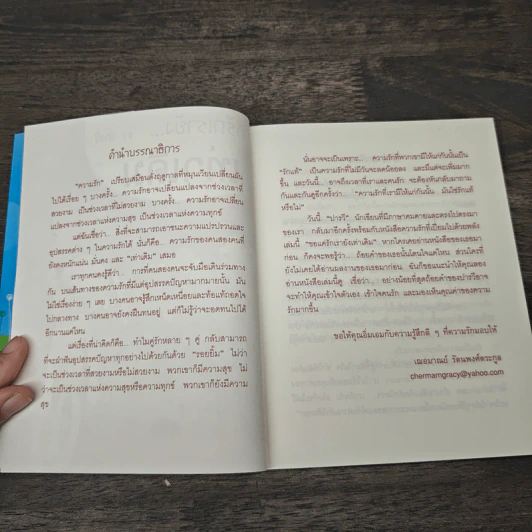 คำนำบรรณาธิการ
"ความรัก" เปรียบเสมือนดั่งฤดูกาลที่หมุนเวียนเปลี่ยนผัน
ไปได้เรื่อย ๆ บางครั้ง... ความรักอาจเปลี่ยนแปลงจากช่วงเวลาที่
สวยงาม เป็นช่วงเวลาที่ไม่สวยงาม บางครั้ง... ความรักอาจเปลี่ยน
แปลงจากช่วงเวลาแห่งความสุข เป็นช่วงเวลาแห่งความทุกข์
แต่ฉันเชื่อว่า... สิ่งที่จะสามารถเอาชนะความแปรปรวนและ
อุปสรรคต่าง ๆ ในความรักได้ นั่นก็คือ... ความรักของคนสองคนที่
ยังคงหนักแน่น มั่นคง และ "เท่าเดิม" เสมอ
เราทุกคนคงรู้ดีว่า... การที่คนสองคนจะจับมือเดินร่วมทาง
กัน บนเส้นทางของความรักที่มีแต่อุปสรรคปัญหามากมายนั้น มัน
ไม่ใช่เรื่องง่าย ๆ เลย บางคนอาจรู้สึกเหนื่อยและท้อแท้ถอดใจ
ไปกลางทาง บางคนอาจยังคงฝืนทนอยู่ แต่ก็ไม่รู้ว่าจะอดทนไปได้
อีกนานแค่ไหน
แต่เรื่องที่น่าคิดก็คือ... ทำไมคู่รักหลาย ๆ คู่ กลับสามารถ
ที่จะฝ่าฟันอุปสรรคปัญหาทุกอย่างไปด้วยกันด้วย "รอยยิ้ม" ไม่ว่า
จะเป็นช่วงเวลาที่สวยงามหรือไม่สวยงาม พวกเขาก็มีความสุข ไม่
ว่าจะเป็นช่วงเวลาแห่งความสุขหรือความทุกข์ พวกเขาก็ยังมีความ
สุข
นั่นอาจจะเป็นเพราะ... ความรักที่พวกเขามีให้แก่กันนั้นเป็น
"รักแท้" เป็นความรักที่ไม่มีวันจะลดน้อยลง และมีแต่จะเพิ่มมาก
ขึ้น และวันนี้... อาจถึงเวลาที่เราและคนรัก จะต้องหันกลับมาถาม
กันและกันดูอีกครั้งว่า... "ความรักที่เรามีให้แก่กันนั้น มันใช่รักแท้
หรือไม่"
วันนี้ นักเขียนที่มีภาษาคมคายและตรงไปตรงมา
ของเรา กลับมาอีกครั้งพร้อมกับหนังสือความรักที่เปี่ยมไปด้วยพลัง
เล่มนี้ "ขอแค่รักเรายังเท่าเดิม" หากใครเคยอ่านหนังสือของเธอมา
ก่อน ก็คงจะพอรู้ว่า... ถ้อยคำของเธอนั้นโดนใจแค่ไหน ส่วนใครที่
ยังไม่เคยได้อ่านผลงานของเธอมาก่อน ฉันก็ขอแนะนำให้คุณลอง
อ่านหนังสือเล่มนี้ดู เชื่อเถอะว่า... อย่างน้อยที่สุดถ้อยคำของ
จะทำให้คุณเข้าใจตัวเอง เข้าใจคนรัก และมองเห็นคุณค่าของความ
รักมากขึ้น
ขอให้คุณอิ่มเอมกับความรู้สึกดี ๆ ที่ความรักมอบให้
เฌอมาณย์ รัตนพงศ์ตระกูล
chermarngracy@yahoo.com